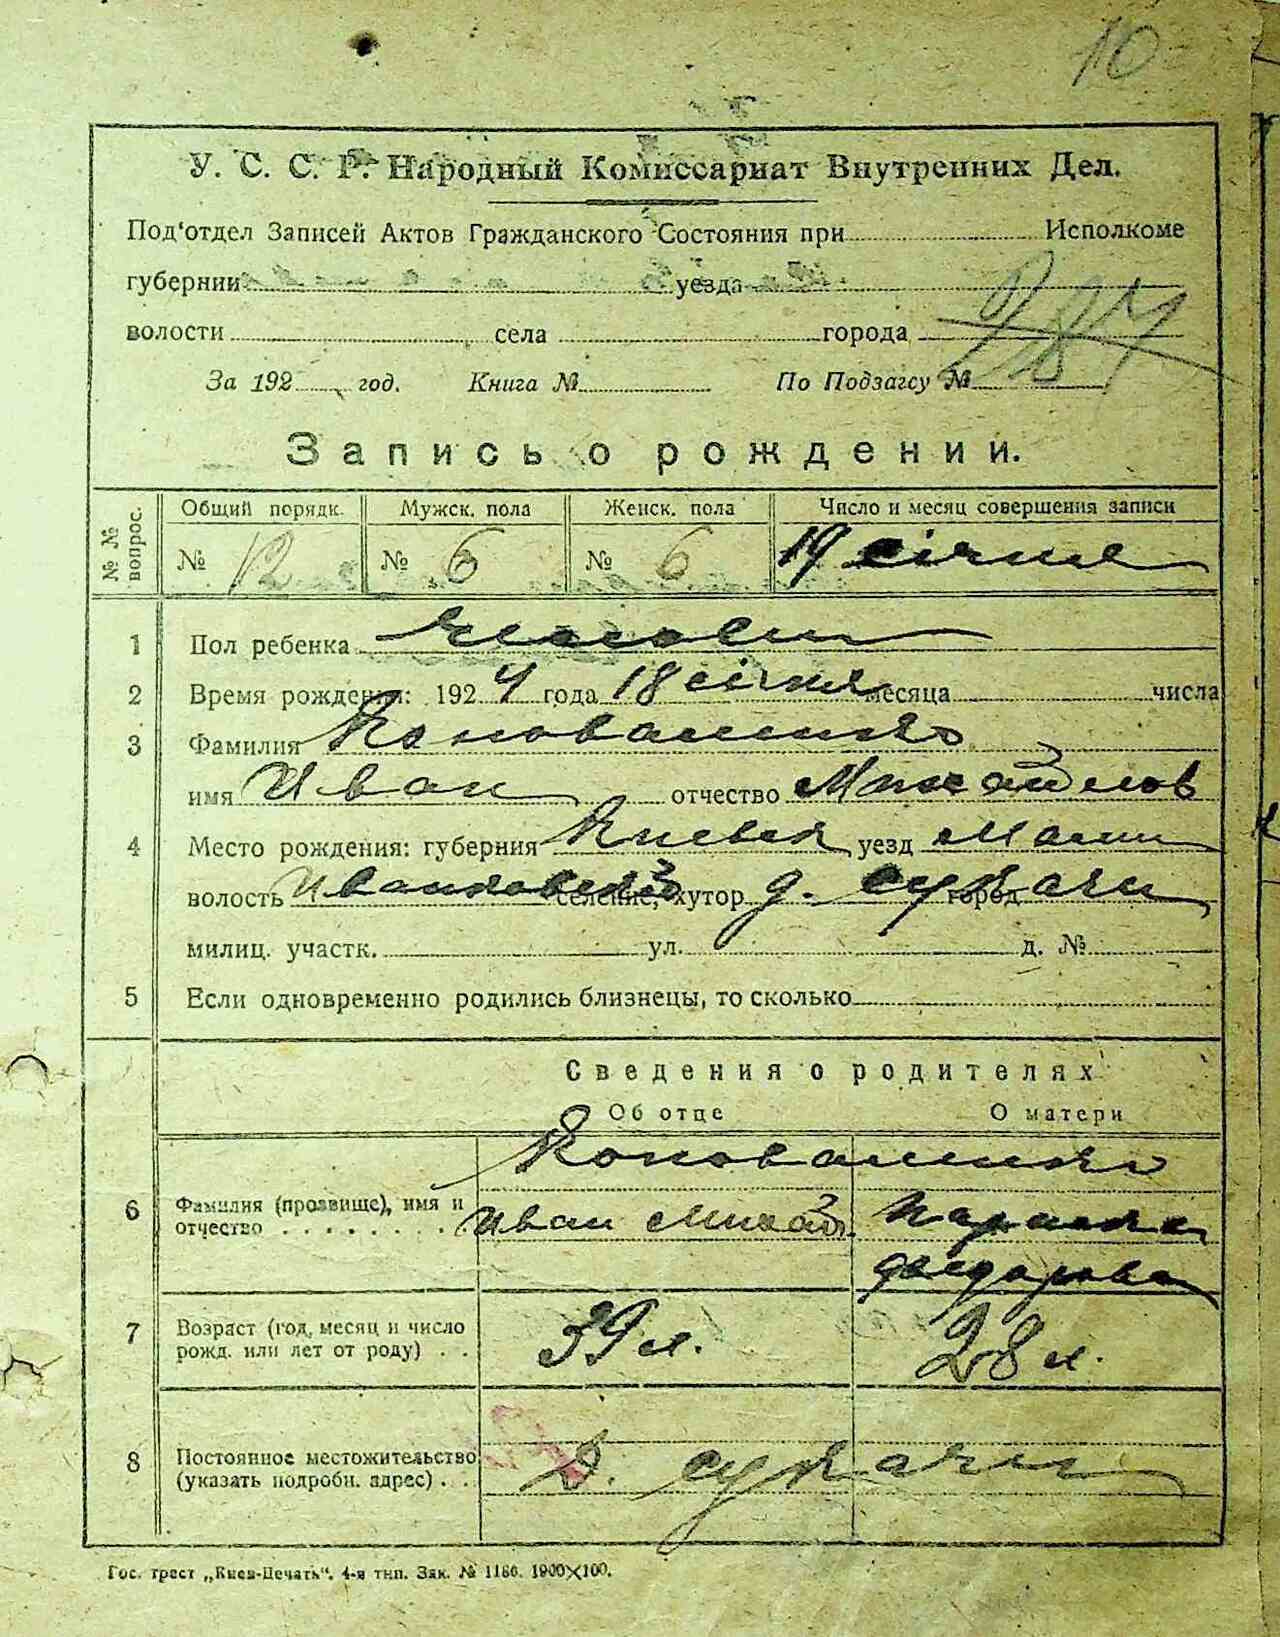 10
У. С. С. Р. Народный Комиссариат Внутренних Дел.
Под‘отдел Записей Актов Гражданского Состояния при Исполкоме
губернии уезда
волости села города
287
За 192 год. Книга № По Подзагсу №
Запись о рождении.
№ № вопрос. Общий порядк. Мужск. пола Женск. пола Число и месяц совершения записи
№ 12 № 6 № 6 19 січня
1 Пол ребенка
2 Время рождения: 1924 года 18 січня месяца числа
3 Фамилия
имя Иван отчество Михайлов
4 Место рождения: губерния Киевск уезд
волость селение, хутор д. Сукачи город
милиц. участк. ул. д. №
5 Если одновременно родились близнецы, то сколько
Сведения о родителях
Об отце О матери
6 Фамилия (прозвище), имя и
отчество Иван Михайл. Параска
7 Возраст (год, месяц и число
рожд. или лет от роду) 39 л. 28 л.
8 Постоянное местожительство
(указать подробн. адрес) Д. Сукачи
Гос. трест „Киев-Печать“. 4-я тип. Зак. № 1186. 1900×100.